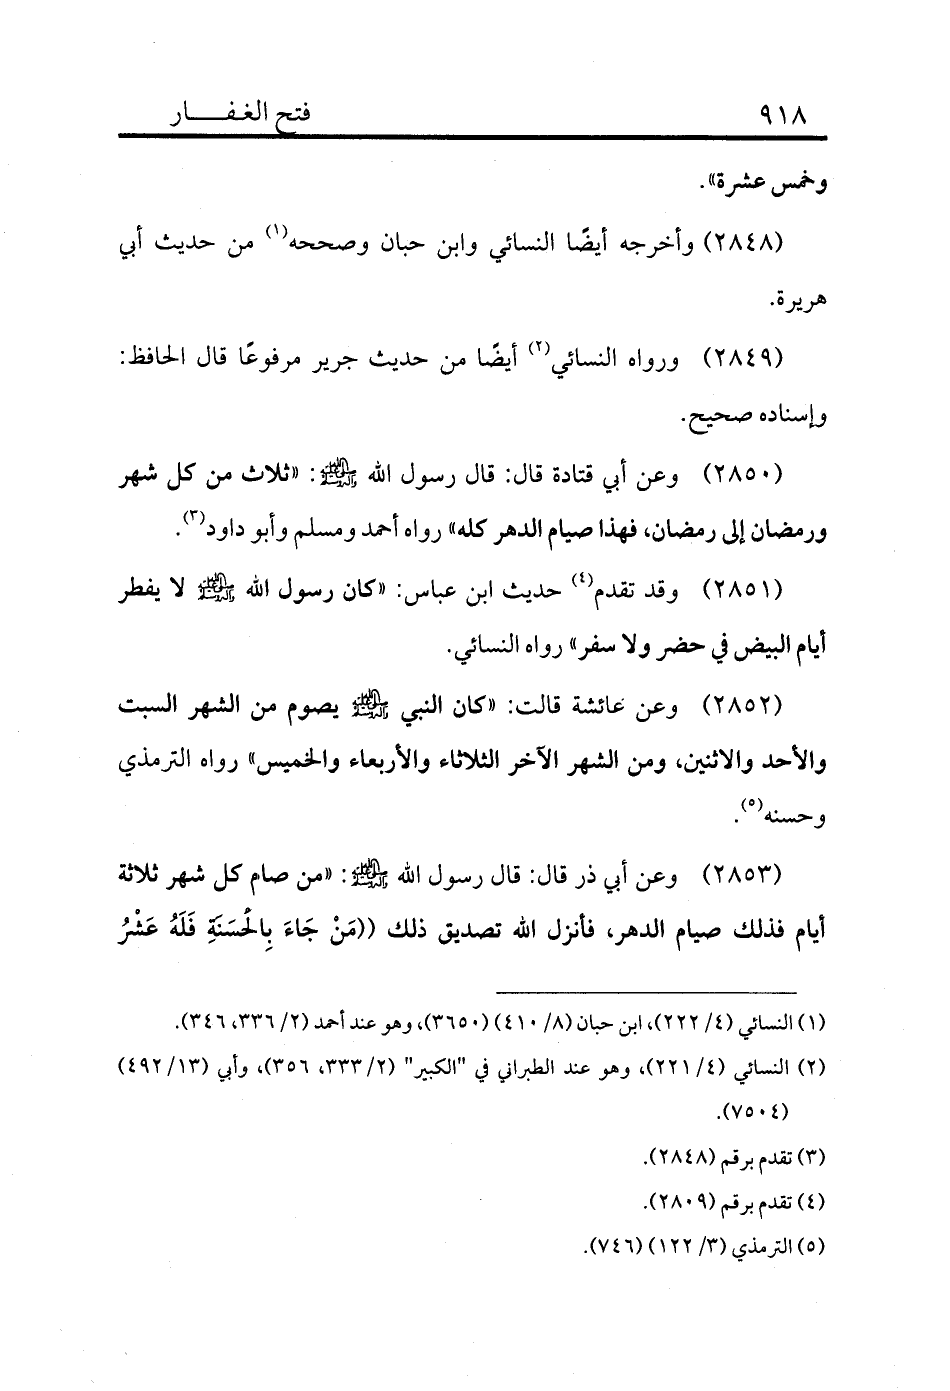 ٩١٨ فتح الغفـــــار
وخمس عشرة».
(٢٨٤٨) وأخرجه أيضًا النسائي وابن حبان وصححه(١) من حديث أبي
هريرة.
(٢٨٤٩) ورواه النسائي(٢) أيضًا من حديث جرير مرفوعًا قال الحافظ:
وإسناده صحيح.
(٢٨٥٠) وعن أبي قتادة قال: قال رسول الله ﷺ: «ثلاث من كل شهر
ورمضان إلى رمضان، فهذا صيام الدهر كله» رواه أحمد ومسلم وأبو داود(٣).
(٢٨٥١) وقد تقدم(٤) حديث ابن عباس: «كان رسول الله ﷺ لا يفطر
أيام البيض في حضر ولا سفر» رواه النسائي.
(٢٨٥٢) وعن عائشة قالت: «كان النبي ﷺ يصوم من الشهر السبت
والأحد والاثنين، ومن الشهر الآخر الثلاثاء والأربعاء والخميس» رواه الترمذي
وحسنه(٥).
(٢٨٥٣) وعن أبي ذر قال: قال رسول الله ﷺ: «من صام كل شهر ثلاثة
أيام فذلك صيام الدهر، فأنزل الله تصديق ذلك ((مَنْ جَاءَ بِالْحَسَنَةِ فَلَهُ عَشْرُ
(١) النسائي (٤/ ٢٢٢)، ابن حبان (٨/ ٤١٠) (٣٦٥٠)، وهو عند أحمد (٢/ ٣٣٦، ٣٤٦).
(٢) النسائي (٤/ ٢٢١)، وهو عند الطبراني في "الكبير" (٢/ ٣٣٣، ٣٥٦)، وأبي (١٣/ ٤٩٢)
(٧٥٠٤).
(٣) تقدم برقم (٢٨٤٨).
(٤) تقدم برقم (٢٨٠٩).
(٥) الترمذي (٣/ ١٢٢) (٧٤٦).